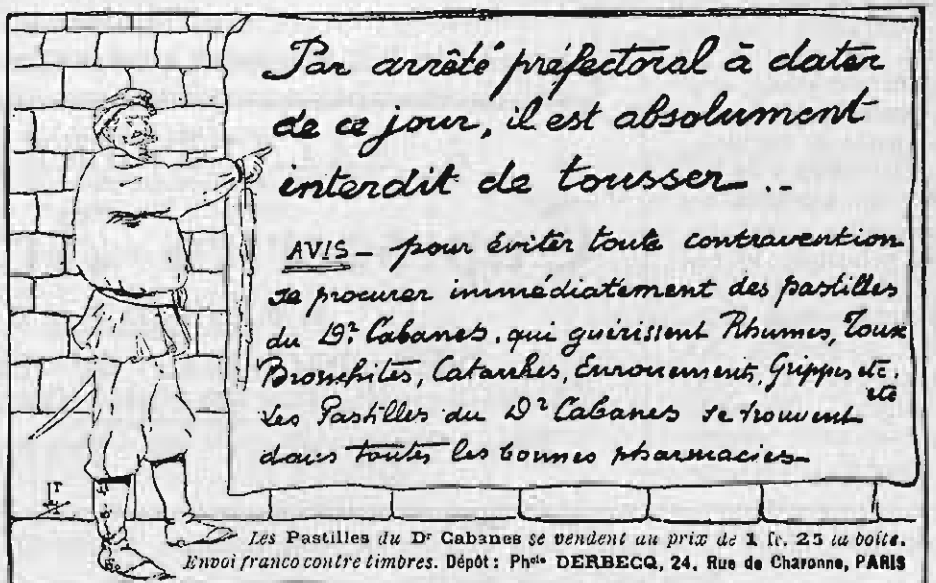 Par arrêté préfectoral à dater
de ce jour, il est absolument
interdit de tousser...
AVIS - pour éviter toute contravention
se procurer immédiatement des pastilles
du Dr Cabanes, qui guérissent Rhumes, Toux
Bronchites, Catarrhes, Enrouements, Grippes etc.
etc
Les Pastilles du Dr Cabanes se trouvent
dans toutes les bonnes pharmacies
Les Pastilles du Dr Cabanes se vendent au prix de 1 fr. 25 la boîte.
Envoi franco contre timbres. Dépôt : Phcie DERBECQ, 24, Rue de Charonne, PARIS